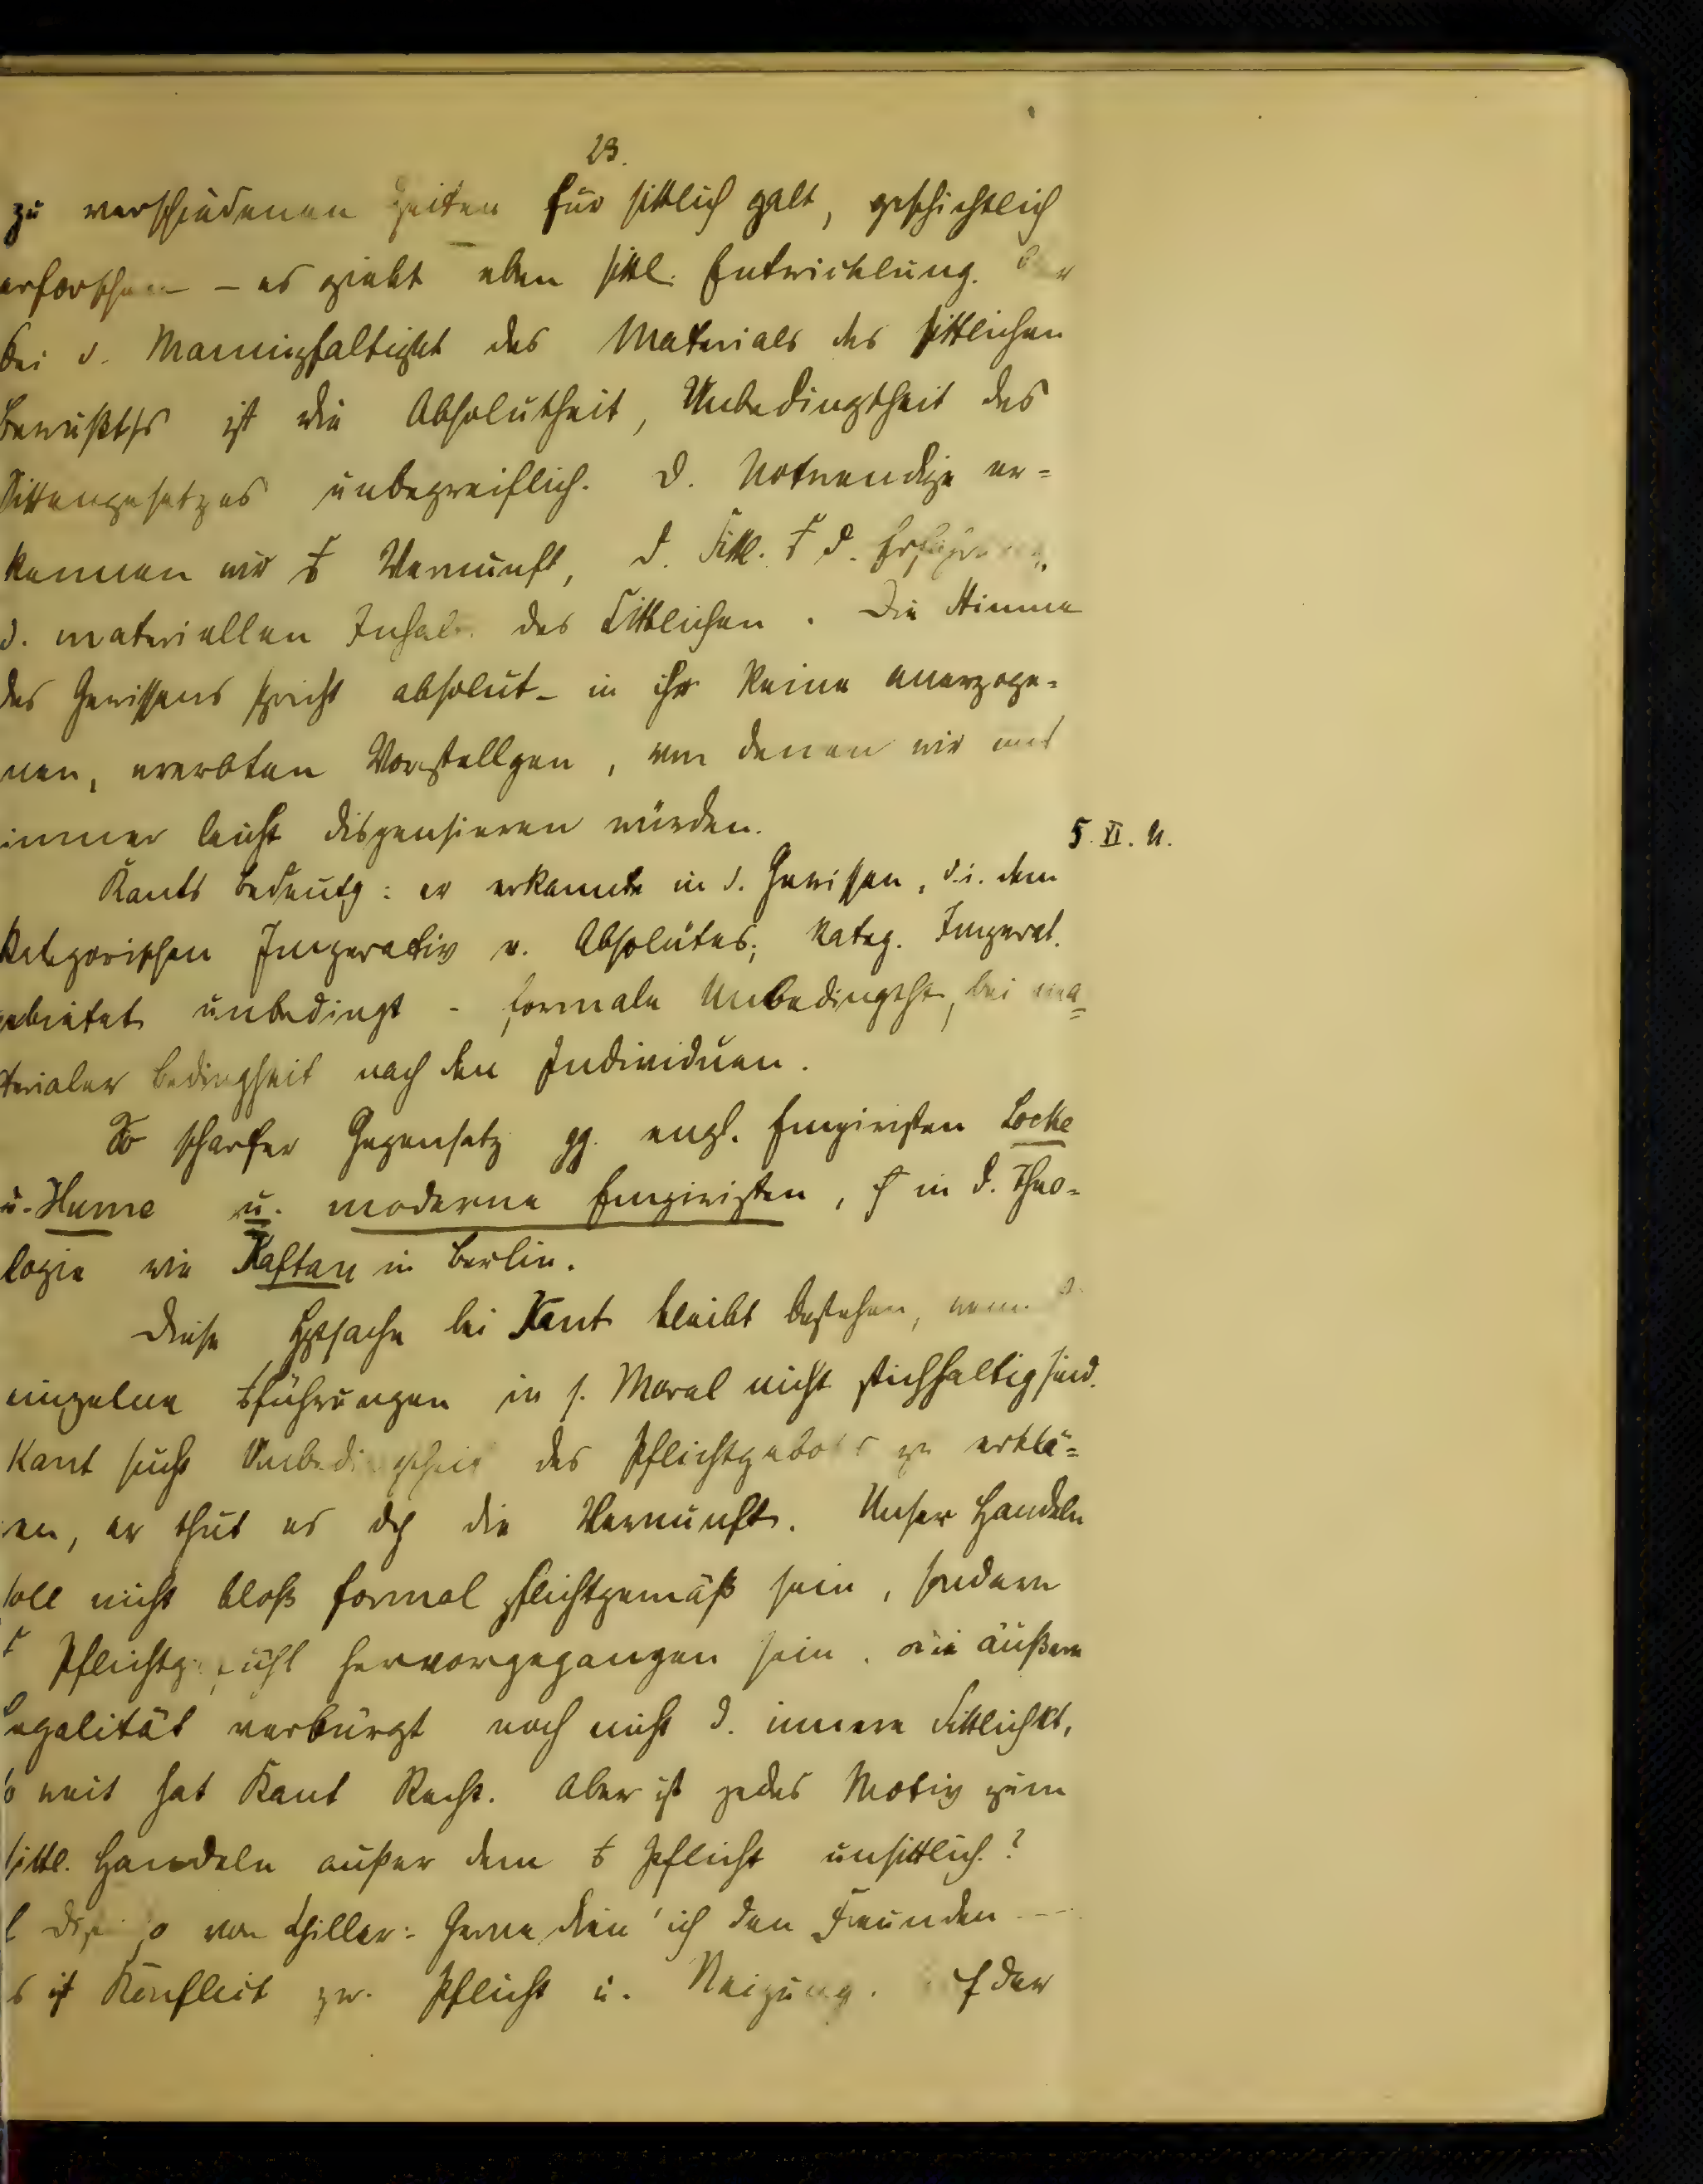 23.
zu verschiedenen Zeiten für sittlich galt, geschichtlich
erforschen – es giebt eben sittl. Entwicklung.
Bei d. Mannigfaltigkt des Materials des sittlichen
Bewußts ist die Absolutheit, Unbedingtheit des
Sittengesetzes unbegreiflich. D. Notwendige er=
kennen wir Vernunft, d. Sittl. d.
d. materiellen des Sittlichen. Die Stimme
des Gewissens spricht absolut – in ihr keine anerzoge=
nen, ererbten Vorstellgen, von denen wir uns
immer leicht dispensieren würden.
5. XI. N.
Kants Bedeutg: er erkannte in d. Gewissen, d.i. dem
kategorischen Imperativ e. Absolutes; kateg. Imperat.
gebietet unbedingt – formale Unbedingtht, bei ma=
terialer Bedingtheit nach den Individuen.
So scharfer Gegensatz gg. engl. Empiristen Locke
u. Hume u. moderne Empiristen, in d. Theo=
logie wie Kaftan in Berlin.
Diese Hptsache bei Kant bleibt bestehen, wenn
einzelne führungen in s. Moral nicht stichhaltig sind.
Kant sucht Unbedingtheit des Pflichtgebots zu erklä=
ren, er thut es dch die Vernunft. Unser Handeln
soll nicht bloß formal pflichtgemäß sein, sondern
Pflichtgefühl hervorgegangen sein. Die äußere
Legalität verbürgt noch nicht d. innere Sittlichkt,
so weit hat Kant Recht. Aber ist jedes Motiv zum
sittl. Handeln außer dem Pflicht unsittlich?
von Schiller: Gerne dien' ich den Freunden ---
es ist Konflict zw. Pflicht u. Neigung. der